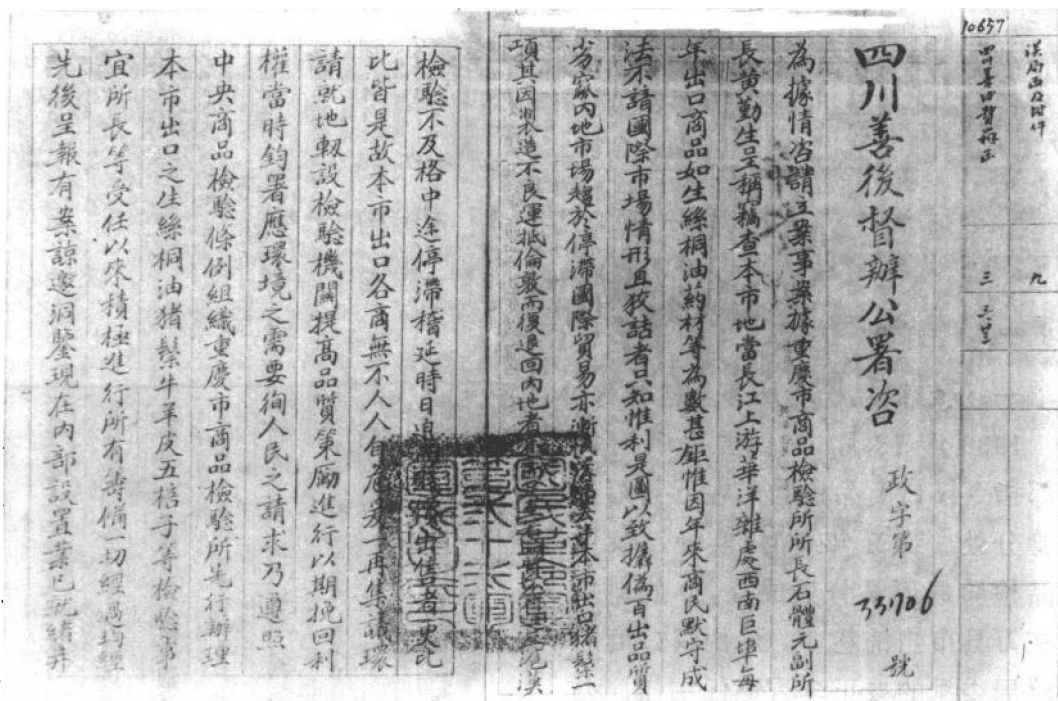 10657
三
九
四川善後督辦公署咨
政字第
33706
號
為據情咨請立案事案據重慶市商品檢驗所所長石體元副所
長黃勤生呈稱竊查本市地當長江上游華洋雜處西南巨埠每
年出口商品如生絲桐油葯材等為數甚鉅惟因年來商民默守成
法不諳國際市場情形且狡詰者只知惟利是圖以致攙偽百出品質
劣窳內地市場趨於停滯國際貿易亦漸本市出口豬鬃一
項其因製造不良運抵倫敦而復退回內地者
檢驗不及格中途停滯稽延時日出售者更比
比皆是故本市出口各商無不人人自危為一再集議環
請就地輙設檢驗機關提高品質策勵進行以期挽回利
權當時鈞署應環境之需要徇人民之請求乃遵照
中央商品檢驗條例組織重慶市商品檢驗所先行辦理
本市出口之生絲桐油猪鬃牛羊皮五棓子等檢驗事
宜所長等受任以來積極進行所有籌備一切經過均經
先後呈報有案諒邀洞鑒現在內部設置業已就緒并